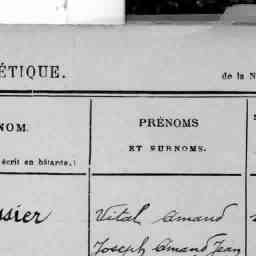 ÉTIQUE.
de la N
NOM.
PRÉNOMS
ET SURNOMS.
écrit en bâtarde.)
ssier
Vital Amand
Joseph Amand Jean